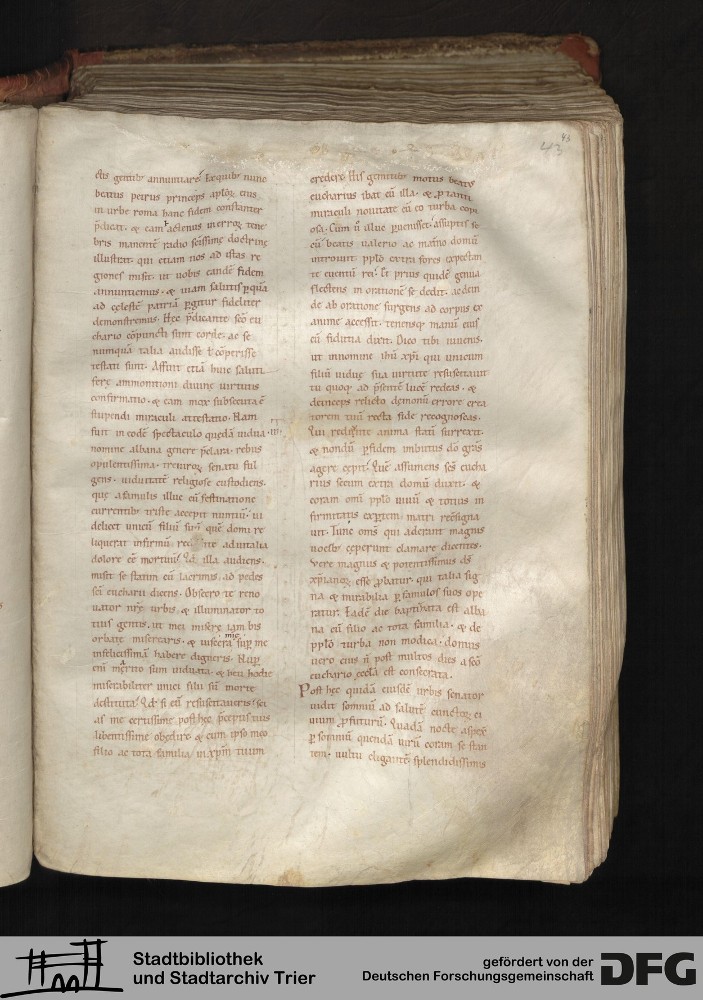 43
43
ctis gentibus annuntiare. Hęc quibus nunc
beatus petrus princeps apłoꝝ eius
in urbe roma hanc fidem constanter
p̄dicat. & eam actenus in erroꝝ tene
bris manentē radio sc̄issimę doctrinę
illustrat. qui etiam nos ad istas re
giones misit. ut uobis eandē fidem
annuntiemus. & uiam salutis ꝑ quā
ad cęlestē patriā ꝑgitur fideliter
demonstremus. Hęc p̄dicante sc̄o eu
chario cōpuncti sunt corde. ac se
numquā talia audisse ł cōperisse
testati sunt. Affuit etiā huic saluti
ferę ammonitioni diuinę uirtutis
confirmatio. & eam mox subsecuta ē
stupendi miraculi attestatio. Nam
fuit in eodē spectaculo quędā uidua
nomine albana genere p̄clara. rebus
opulentissima. treuiroꝝ senatu ful
gens. uiduitatē religiose custodiens.
quę a famulis illuc cū festinatione
currentibus triste accepit nuntiū. ui
delicet unicū filiū suū quē domi re
liquerat infirmū
dolore eē mortuū. Qđ illa audiens.
misit se statim cū lacrimis. ad pedes
sc̄i eucharii dicens. Obsecro te reno
uator nr̄ę urbis. & illuminator to
tius gentis. ut mei miserę iam bis
orbatę miserearis. & uiscera mię. suꝑ me
infelicissimā habere digneris. Nuꝑ
eni marito sum uiduata. & heu hodie
miserabiliter unici filii sū morte
destituta. Qđ si eū resuscitaueris. sci
as me certissime post hęc p̄ceptis tuis
libentissime obedire & cum ipso meo
filio ac tota familia in xp̄m tuum
credere. His gemitibus motus beatus
eucharius ibat cū illa. & ꝓ tanti
miraculi nouitate cū eo turba copi
osa. Cum ū illuc ꝑuenisset. assūptis se
cū beatis ualerio ac mat̄no domū
introiuit. pplō extra fores expectan
te euentū rei. Et prius quidē genua
flectens in orationē se dedit. ac dein
de ab oratione surgens ad corpus ex
anime accessit. tenensq; manū eius
cū fiducia dixit. Dico tibi iuuenis.
ut in nomine ihū xp̄i qui unicum
filiū uiduę sua uirtute resuscitauit
tu quoq; ad p̄sentē lucē redeas. &
deinceps relicto demonū errore crea
torem tuū recta fide recognoscas.
Qui rediuiuę anima statī surrexit.
& nondū ꝑ fidem imbutus dō grās
agere cępit. Quē assumens sc̄s eucha
rius secum extra domū duxit. &
coram omi pplō uiuū & totius in
firmitatis exꝑtem. matri reċsigna
uit. Tunc oms̄ qui aderant magnis
uocibus cęperunt clamare dicentes.
Vere magnus & potentissimus ds̄
xp̄ianoꝝ esse ꝓbatur. qui talia sig
na & mirabilia ꝑ famulos suos ope
ratur. Eadē die baptizata est alba
na cū filio ac tota familia. & de
pplō turba non modica. domus
uero eius ñ post multos dies a sc̄o
euchario ęccła est consecrata.
Post hęc quidā eiusdē urbis senator
uidit somniū ad salutē cunctoꝝ ci
uium ꝓfuturū. Quadā nocte aspexit
ꝑ somniū quendā uirū coram se stan
tem. uultu elegantē splendidissimis
Stadtbibliothek
und Stadtarchiv Trier
gefördert von der
Deutschen Forschungsgemeinschaft
DFG